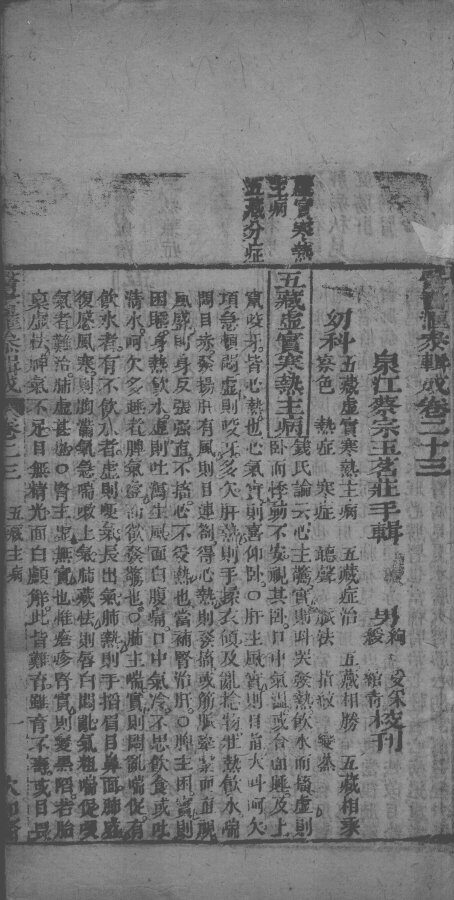 虛實寒熱
主病
五藏分症
醫書滙參輯成卷二十三
泉江蔡宗玉茗莊手輯
男
校刊
幼科
五藏虛實寒熱主病 五藏症治 五藏相勝 五藏相乘
察色 熱症 寒症 聽聲 脈法
五藏虛實寒熱主病
錢氏論云心主驚實則叫哭發熱飲水而搐虛則
臥而悸動不安視其困口中氣溫或合面睡及上
竄咬牙皆心熱也心氣實則喜仰臥〇肝主風實則目直大叫呵欠
項急頓悶虛則咬牙多欠肝熱則手尋衣領及亂捻物壯熱飲水喘
悶目赤發搐肝有風則目連劄得心熱則發搐或筋脈牽緊而直視
風盛則身反張強直不搐心不受熱也當補腎治肝〇脾主困實則
困睡身熱飲水虛則吐瀉生風面白腹痛口中氣冷不思飲食或吐
清水呵欠多睡者脾氣虛而欲發驚也〇肺主喘實則悶亂喘促有
飲水者有不飲水者虛則哽氣長出氣肺熱則手掐眉目鼻面肺盛
復感風寒則胸滿氣急喘嗽上氣肺藏怯則唇白悶亂氣粗喘促哽
氣者難治肺虛甚也〇腎主虛無實也惟瘡疹腎實則變黑陷若胎
稟虛怯神氣不足目無精光面白顱解此皆難育雖育不壽或目畏
醫書滙參輯成 卷二三 五藏主病 一